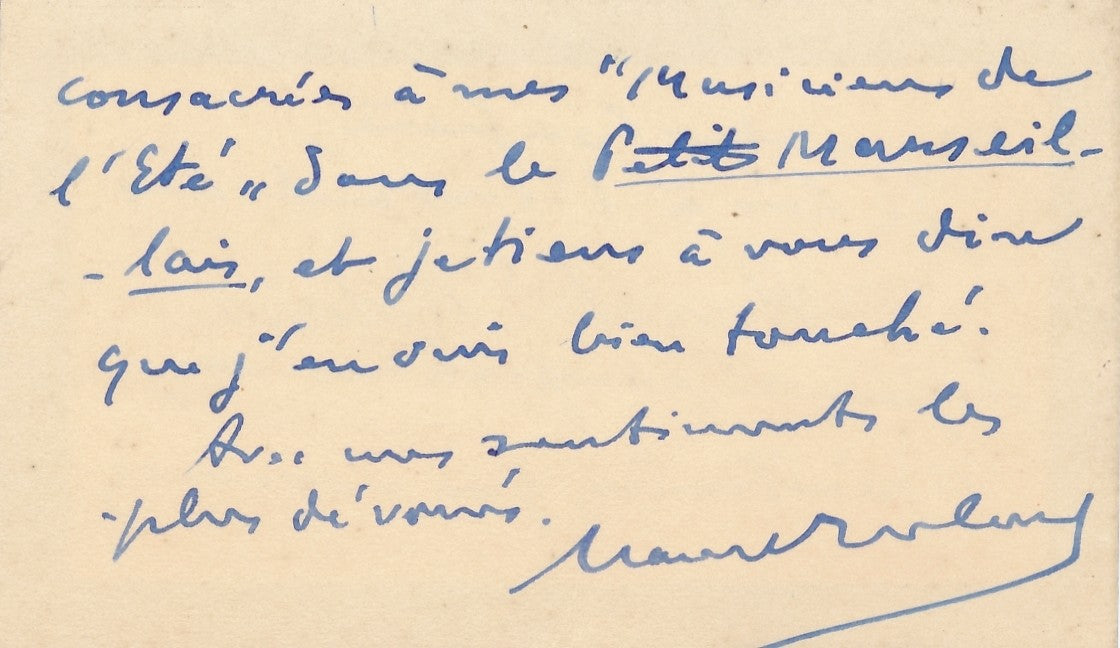 consacrées à mes "Musiciens de
l'Eté" dans le Petit Marseil-
-lais, et je tiens à vous dire
que j'en suis bien touché.
Avec mes sentiments les
plus dévoués.